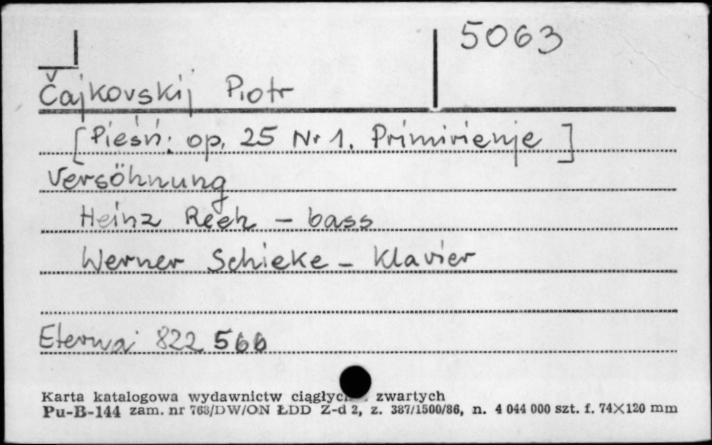 5063
Čajkovskij Piotr
[Pieśń; op. 25 Nr 1. Primirienje]
Versöhnung
Heinz Reeh - bass
Werner Schieke - Klavier
Eterna 822 566
Karta katalogowa wydawnictw ciągłych zwartych
Pu-B-144 zam. nr 763/DW/ON ŁDD Z-d 2, z. 387/1500/86, n. 4 044 000 szt. f. 74×120 mm